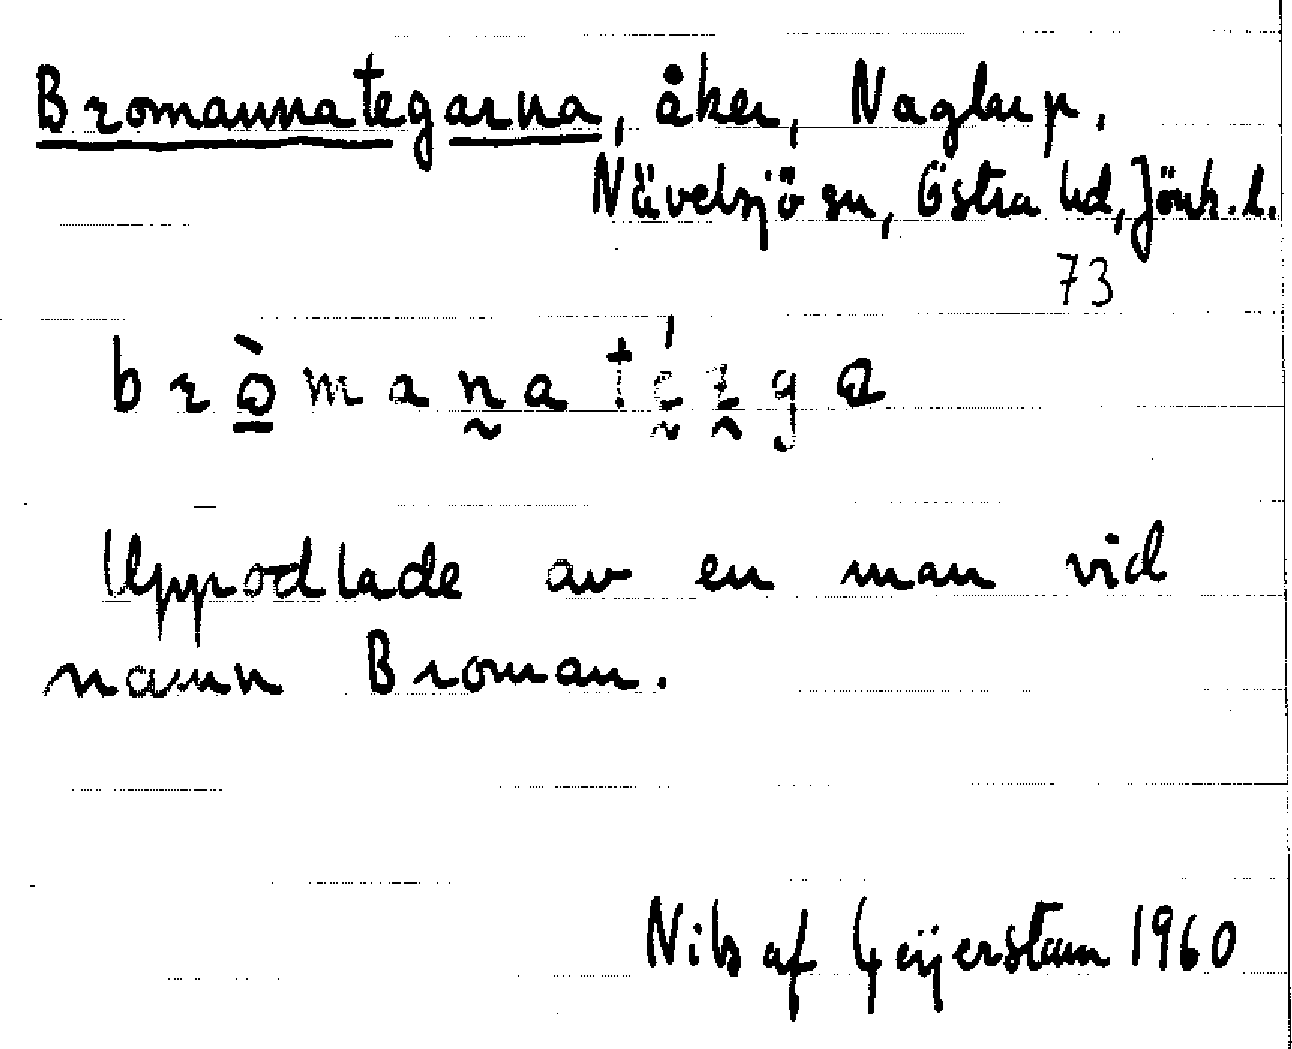 Bromannategarna, åker, Naglarp,
Nävelsjö sn, Östra hd, Jönk. l.
73
Uppodlade av en man vid
namn Broman.
Nils af Geijerstam 1960